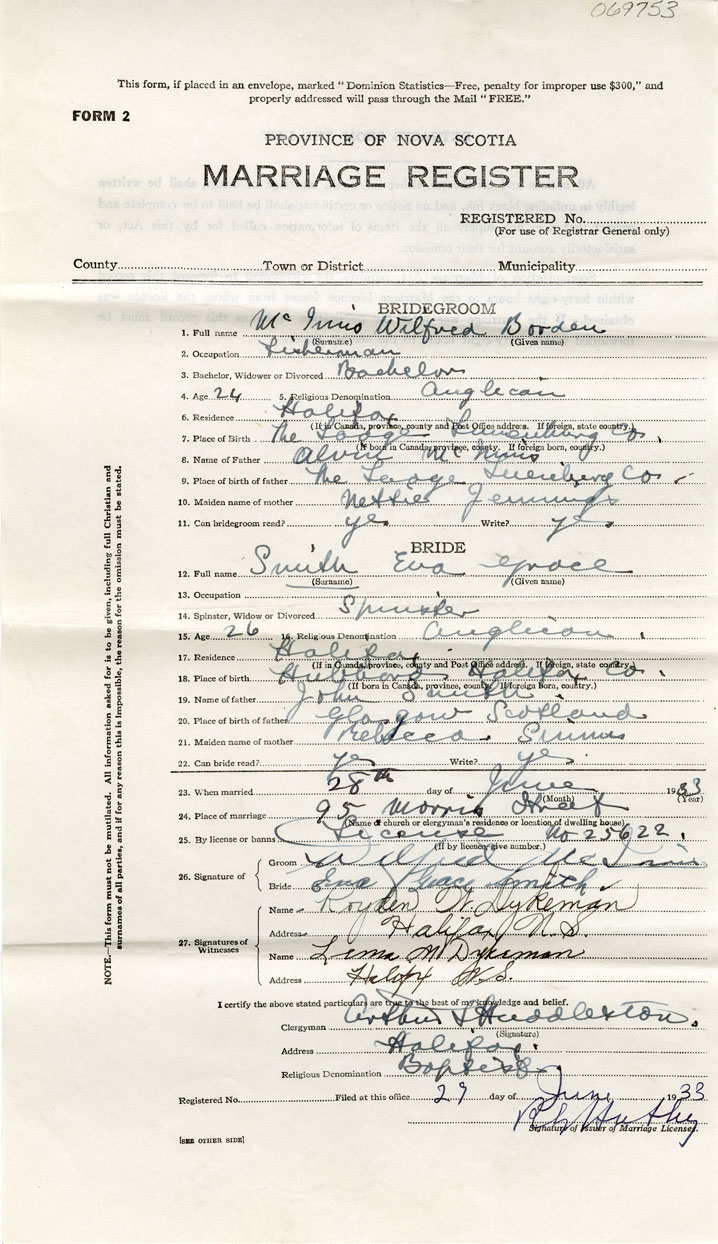 069753
This form, if placed in an envelope, marked "Dominion Statistics—Free, penalty for improper use $300," and
properly addressed will pass through the Mail "FREE."
FORM 2
PROVINCE OF NOVA SCOTIA
MARRIAGE REGISTER
REGISTERED No.
(For use of Registrar General only)
County Town or District Municipality
BRIDEGROOM
1. Full name McInnis Wilfred Borden
(Surname) (Given name)
2. Occupation Fisherman
3. Bachelor, Widower or Divorced Bachelor
4. Age 24 5. Religious Denomination Anglican
6. Residence Halifax
(If in Canada, province, county and Post Office address. If foreign, state country.)
7. Place of Birth The Lodge Lunenburg Co.
(If born in Canada, province, county. If foreign born, country.)
8. Name of Father Alvin McInnis
9. Place of birth of father The Lodge Lunenburg Co.
10. Maiden name of mother Nettie Jennings
11. Can bridegroom read? yes Write? yes
BRIDE
12. Full name Smith Eva Grace
(Surname) (Given name)
13. Occupation
14. Spinster, Widow or Divorced Spinster
15. Age 26 16. Religious Denomination Anglican
17. Residence Halifax
(If in Canada, province, county and Post Office address. If foreign, state country.)
18. Place of birth Hubbards Halifax Co.
(If born in Canada, province, county. If foreign born, country.)
19. Name of father John Smith
20. Place of birth of father Glasgow Scotland
21. Maiden name of mother Rebecca Simms
22. Can bride read? yes Write? yes
23. When married 28th day of June 1933
(Month) (Year)
24. Place of marriage 95 Morris Street
(Name of church or clergyman's residence or location of dwelling house)
25. By license or banns License No 25622.
(If by licence give number.)
26. Signature of Groom Wilfred McInnis
Bride Eva Grace Smith
27. Signatures of Witnesses
Name Royden W. Dykeman
Address Halifax N.S.
Name M Dykeman
Address Halifax N.S.
I certify the above stated particulars are true to the best of my knowledge and belief.
Clergyman Arthur S Huddleston.
(Signature)
Address Halifax.
Religious Denomination Baptist
Registered No. Filed at this office 29 day of June 1933
Signature of Issuer of Marriage Licenses.
[SEE OTHER SIDE]
NOTE.—This form must not be mutilated. All information asked for is to be given, including full Christian and
surnames of all parties, and if for any reason this is impossible, the reason for the omission must be stated.